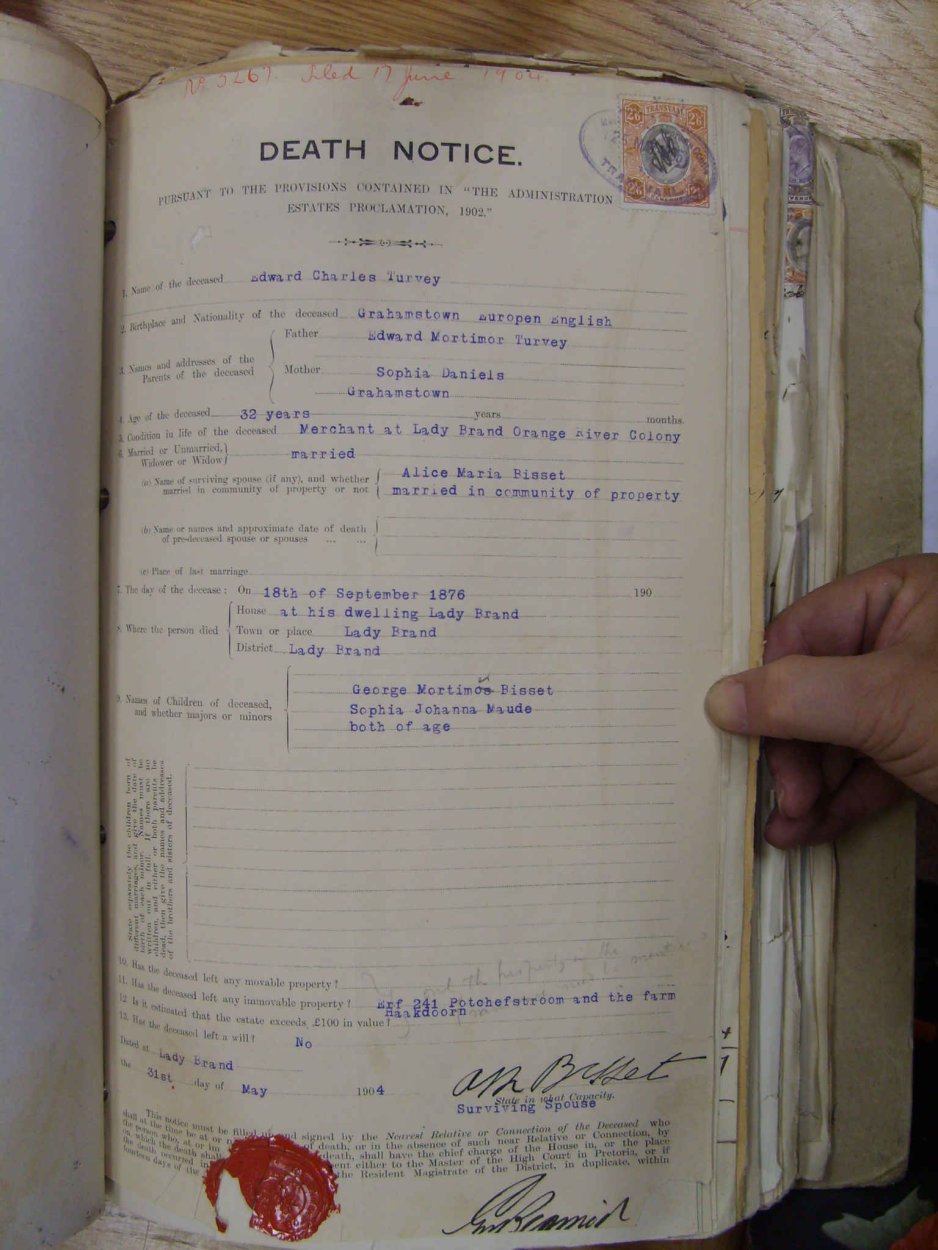 No 5267. Filed 17 June 1904.
TRANSVAAL
2/6 2/6
2/6 2/6
DEATH NOTICE.
PURSUANT TO THE PROVISIONS CONTAINED IN "THE ADMINISTRATION
ESTATES PROCLAMATION, 1902."
1. Name of the deceased Edward Charles Turvey
2. Birthplace and Nationality of the deceased Grahamstown Europen English
Father Edward Mortimor Turvey
3. Names and addresses of the
Parents of the deceased
Mother Sophia Daniels
Grahamstown
4. Age of the deceased 32 years years months.
5. Condition in life of the deceased Merchant at Lady Brand Orange River Colony
6. Married or Unmarried,
Widower or Widow married
(a) Name of surviving spouse (if any), and whether Alice Maria Bisset
married in community of property or not married in community of property
(b) Name or names and approximate date of death
of pre-deceased spouse or spouses ... ...
(c) Place of last marriage
7. The day of the decease: On 18th of September 1876 190
House at his dwelling Lady Brand
8. Where the person died Town or place Lady Brand
District Lady Brand
George Mortimor Bisset
9. Names of Children of deceased, Sophia Johanna Maude
and whether majors or minors both of age
State separately the children born of
different marriages, and give the date of
birth of each minor. Names must be
written out in full. If there are no
children, and either or both parents be
dead, then give the names and addresses
of the brothers and sisters of deceased.
10. Has the deceased left any movable property?
11. Has the deceased left any immovable property? Erf 241 Potchefstroom and the farm
Haakdoorn
12. Is it estimated that the estate exceeds £100 in value?
13. Has the deceased left a will? No
Dated at Lady Brand
the 31st day of May 1904
AM Bisset
State in what Capacity.
Surviving Spouse
This notice must be filled and signed by the Nearest Relative or Connection of the Deceased who
shall at the time be at or of death, or in the absence of such near Relative or Connection, by
the person who, at or death, shall have the chief charge of the House in, or the place
in which the death shall ent either to the Master of the High Court in Pretoria, or if
the death occurred in the Resident Magistrate of the District, in duplicate, within
fourteen days of the